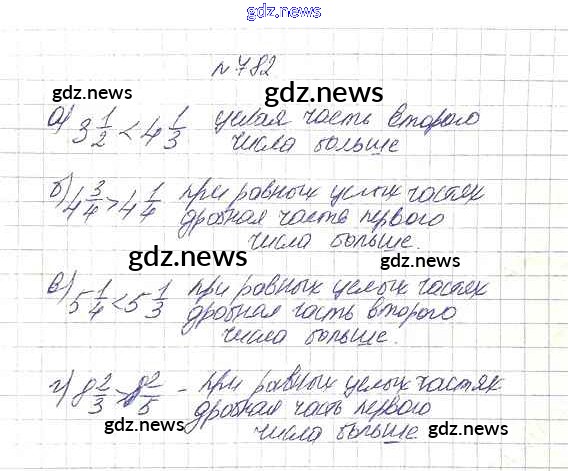 gdz.news
№782
gdz.news
gdz.news
а) 3 1/2 < 4 1/3 целая часть второго
числа больше
gdz.news
б) 4 3/4 > 4 1/4 при равных целых частях
дробная часть первого
числа больше.
gdz.news
gdz.news
в) 5 1/4 < 5 1/3 при равных целых частях
дробная часть второго
числа больше.
г) 8 2/3 > 8 2/5 - при равных целых частях
дробная часть первого
числа больше.
gdz.news
gdz.news